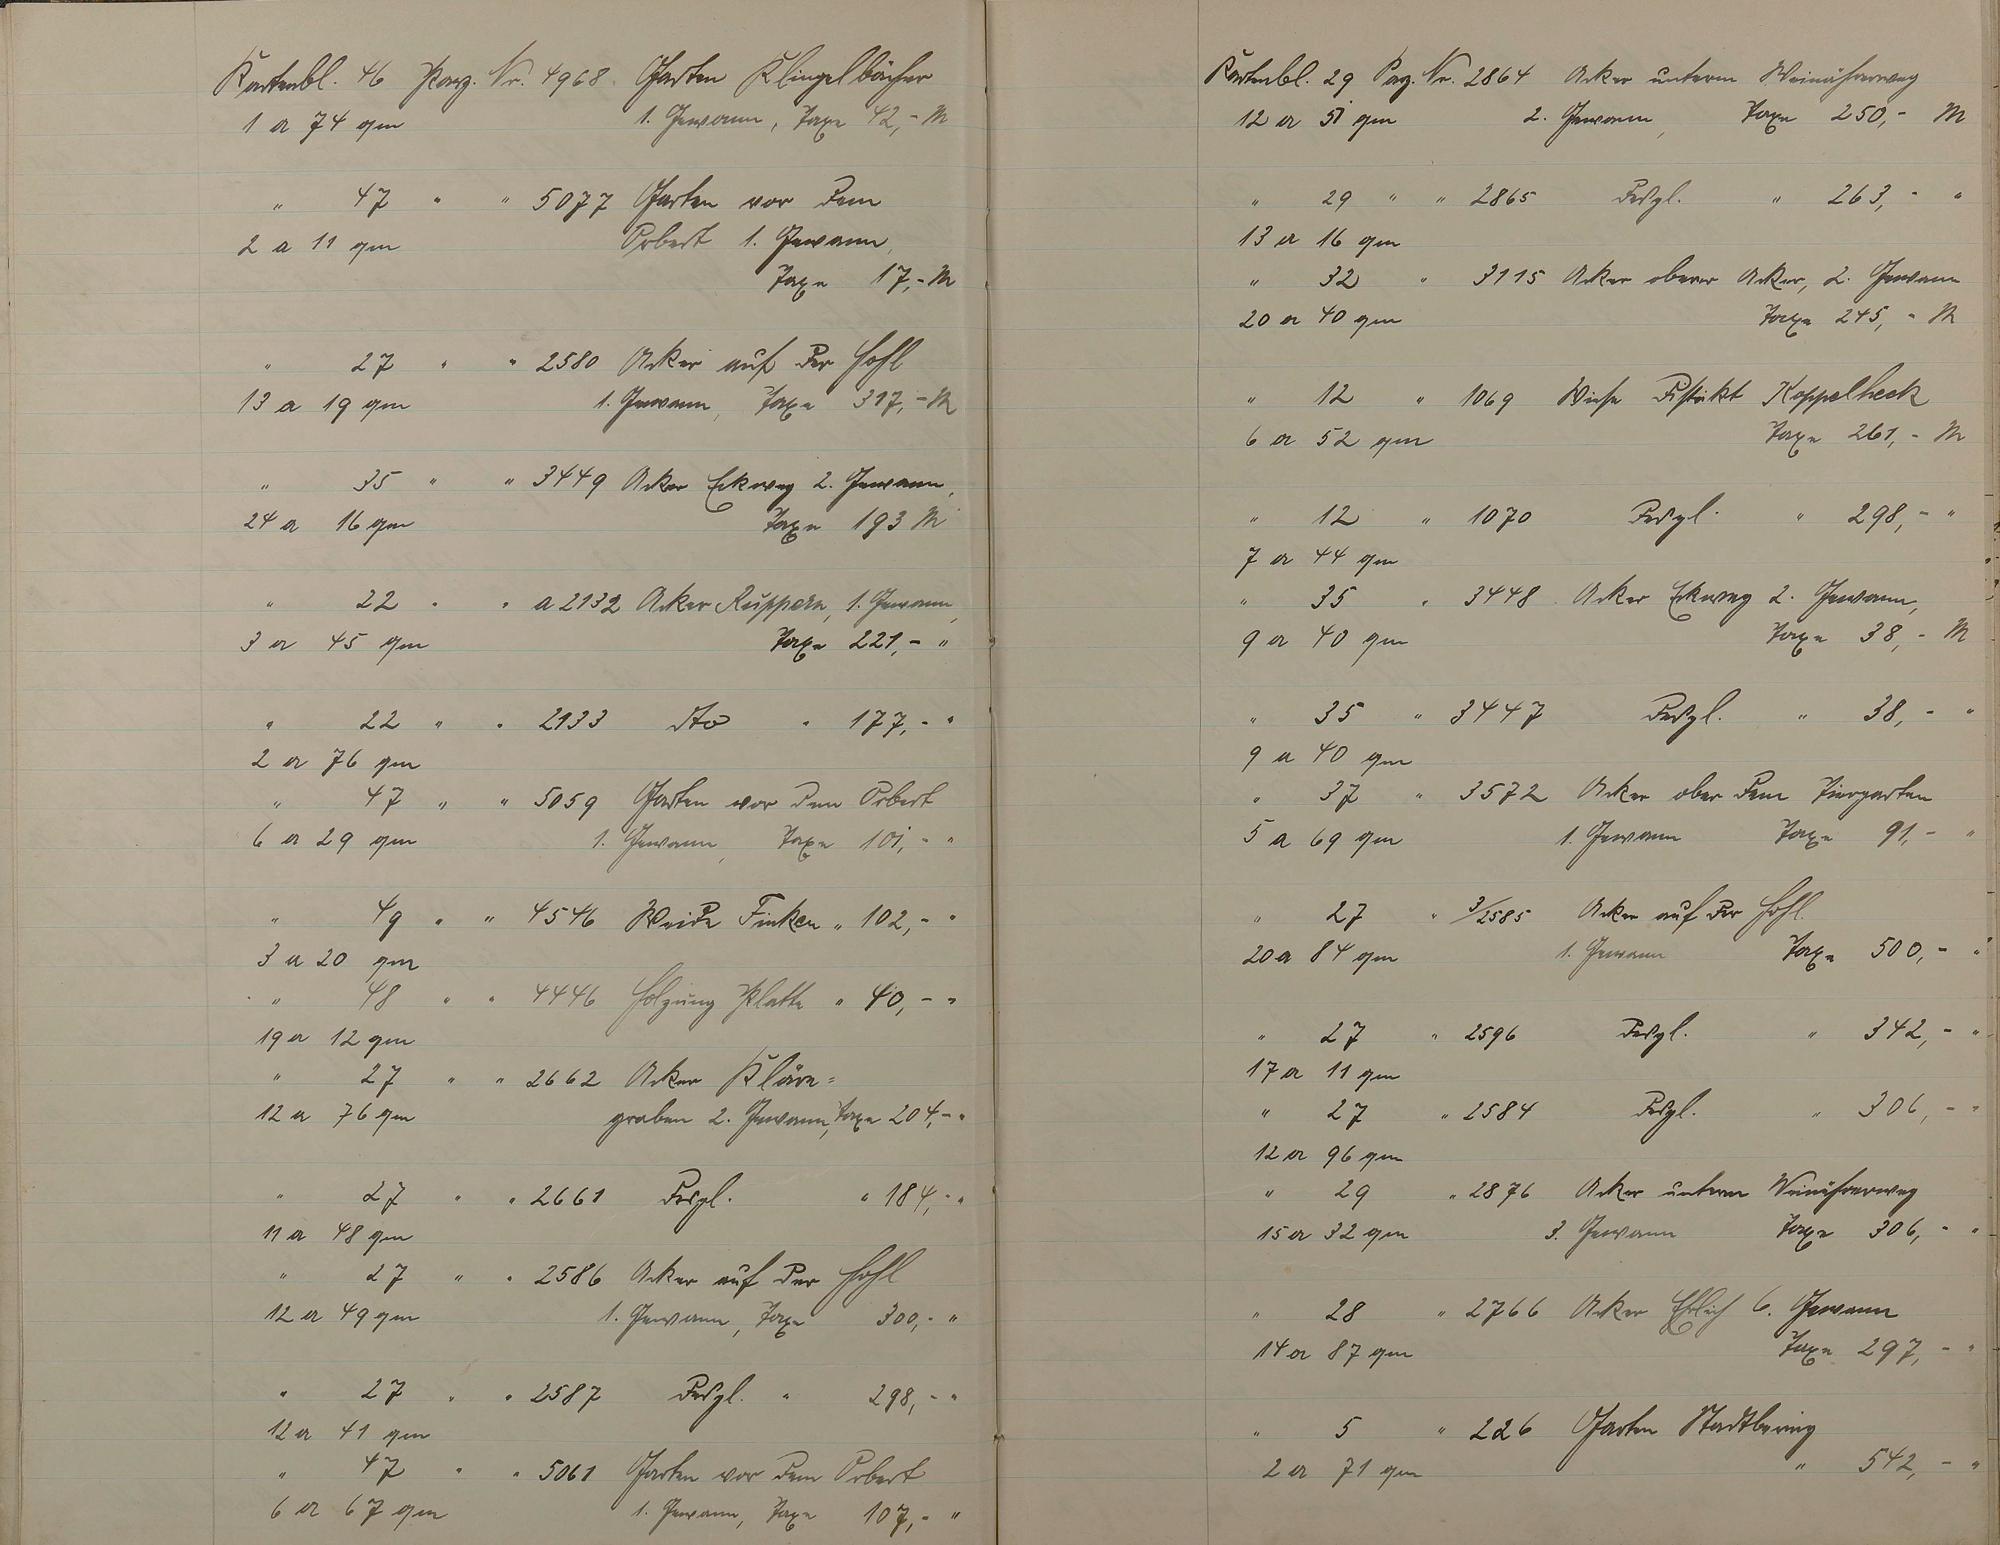 Kartenbl. 46 Parz. Nr. 4968 Garten Klingelbächer
1 a 74 qm 1. Gewann, Taxe 42,- M
" 47 " " 5077 Garten vor dem
2 a 11 qm Orbert 1. Gewann,
Taxe 17,- M
" 27 " " 2580 Acker auf der Hohl
13 a 19 qm 1. Gewann, Taxe 317,- M
" 35 " " 3449 Acker Eckweg 2. Gewann,
24 a 16 qm Taxe 193 M
" 22 " " a 2132 Acker Ruppern, 1. Gewann,
3 a 45 qm Taxe 221,- "
" 22 " " 2133 dto " 177,- "
2 a 76 qm
" 47 " " 5059 Garten vor dem Orbert
6 a 29 qm 1. Gewann, Taxe 101,- "
" 49 " " 4546 Weide Finken " 102,- "
3 a 20 qm
" 48 " " 4446 Holzung Platte " 40,- "
19 a 12 qm
" 27 " " 2662 Acker Kläre=
12 a 76 qm graben 2. Gewann, Taxe 204,- "
" 27 " " 2661 Desgl. " 184,- "
11 a 48 qm
" 27 " " 2586 Acker auf der Hohl
12 a 49 qm 1. Gewann, Taxe 300,- "
" 27 " " 2587 Desgl. " 298,- "
12 a 41 qm
" 47 " " 5061 Garten vor dem Orbert
6 a 67 qm 1. Gewann, Taxe 107,- "
Kartenbl. 29 Parz. Nr. 2864 Acker unterm Weinährerweg
12 a 51 qm 2. Gewann, Taxe 250,- M
" 29 " " 2865 Desgl. " 263,- "
13 a 16 qm
" 32 " 3115 Acker oberer Acker, 2. Gewann
20 a 40 qm Taxe 245,- M
" 12 " 1069 Wiese Distrikt Koppelheck
6 a 52 qm Taxe 261,- M
" 12 " 1070 Desgl. " 298,- "
7 a 44 qm
" 35 " 3448 Acker Eckweg 2. Gewann,
9 a 40 qm Taxe 38,- M
" 35 " 3447 Desgl. " 38,- "
9 a 40 qm
" 37 " 3572 Acker ober dem Tiergarten
5 a 69 qm 1. Gewann Taxe 91,- "
" 27 " 3/2585 Acker auf der Hohl.
20 a 84 qm 1. Gewann Taxe 500,- "
" 27 " 2596 Desgl. " 342,- "
17 a 11 qm
" 27 " 2584 Desgl. " 306,- "
12 a 96 qm
" 29 " 2876 Acker unterm Weinährerweg
15 a 32 qm 3. Gewann Taxe 306,- "
" 28 " 2766 Acker Erlich 6. Gewann
14 a 87 qm Taxe 297,- "
" 5 " 226 Garten Stadtbering
2 a 71 qm " 542,- "